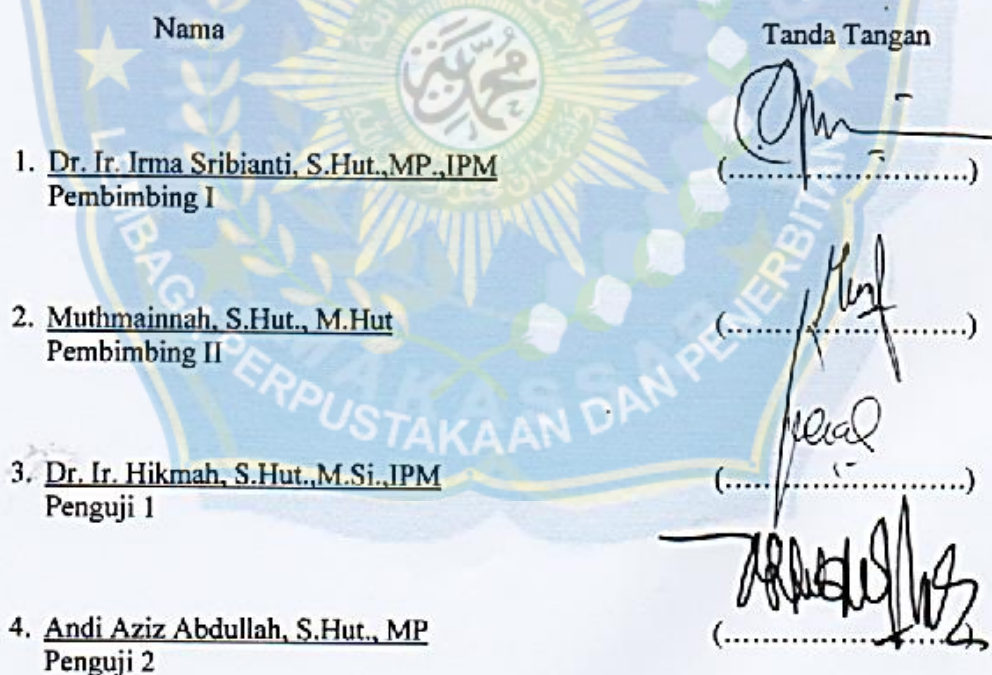 Nama
Tanda Tangan
1. Dr. Ir. Irma Sribianti, S.Hut.,MP.,IPM
(........................)
Pembimbing I
2. Muthmainnah, S.Hut., M.Hut
(........................)
Pembimbing II
3. Dr. Ir. Hikmah, S.Hut.,M.Si.,IPM
(........................)
Penguji 1
4. Andi Aziz Abdullah, S.Hut., MP
(........................)
Penguji 2
محمد
LEMBAGA PERPUSTAKAAN DAN PENERBITAN
MAKASSAR